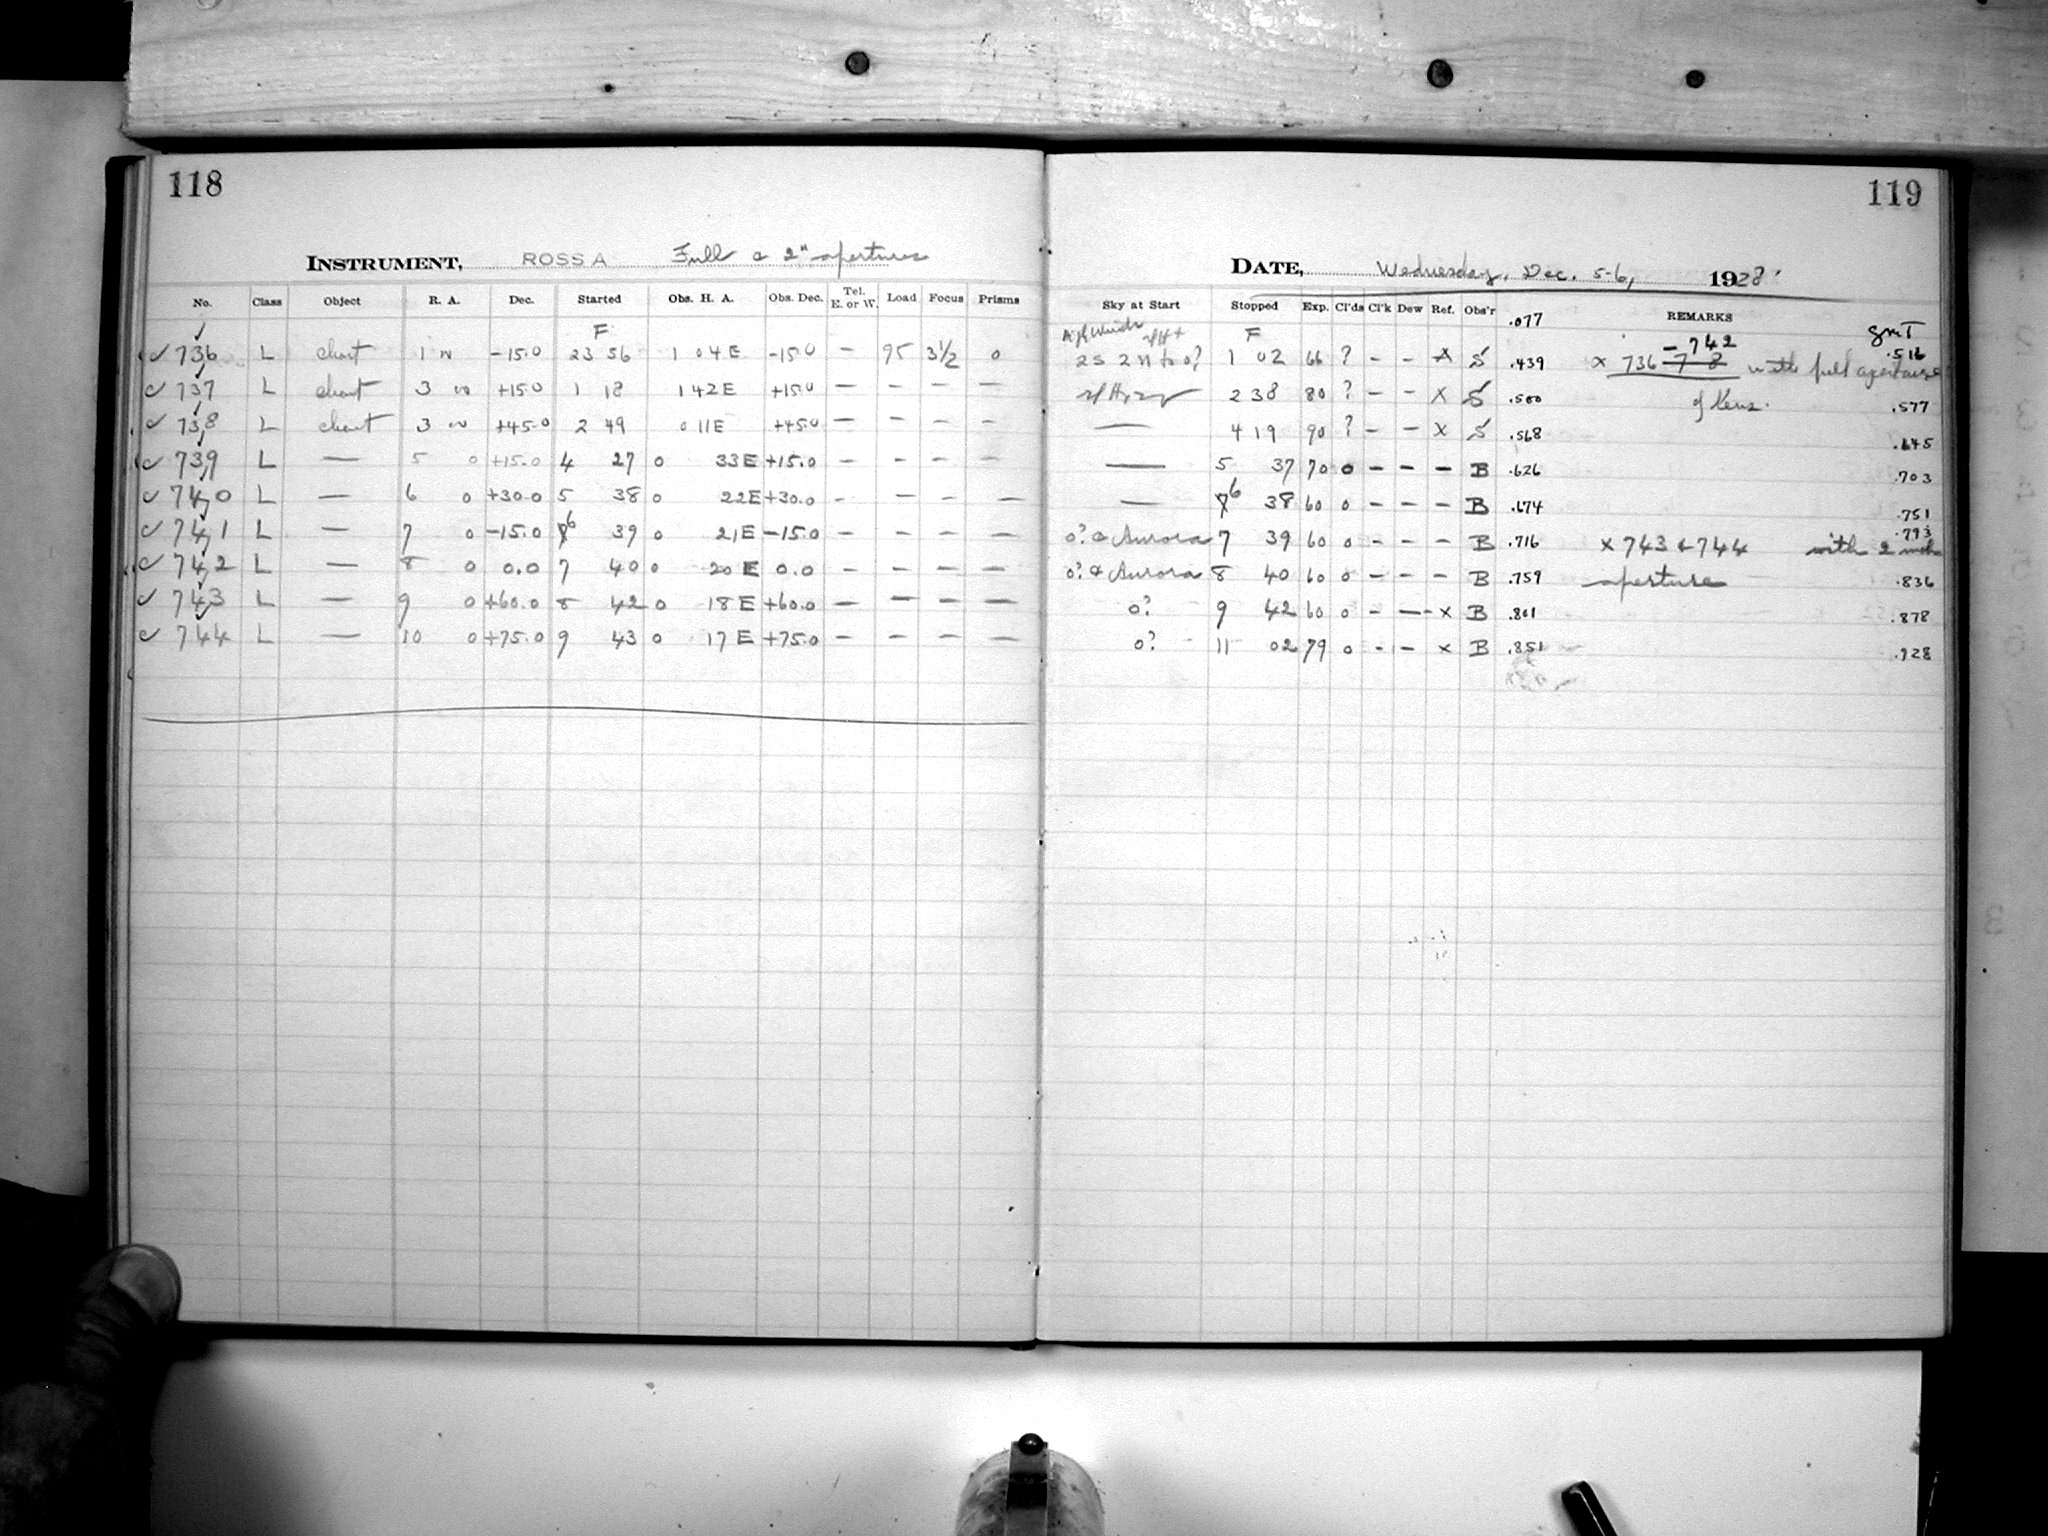 118
INSTRUMENT, ROSS A Full & 2" apertures
No. Class Object R. A. Dec. Started Obs. H. A. Obs. Dec. Tel. E. or W. Load Focus Prisms
F
✓ 736 L chart 1 -15.0 23 56 1 04 E -15.0 — 95 3½ 0
✓ 737 L chart 3 +15.0 1 18 1 42 E +15.0 — — — —
✓ 738 L chart 3 +45.0 2 49 0 11 E +45.0 — — — —
✓ 739 L — 5 0 +15.0 4 27 0 33 E +15.0 — — — —
✓ 740 L — 6 0 +30.0 5 38 0 22 E +30.0 - — — —
✓ 741 L — 7 0 -15.0 6 39 0 21 E -15.0 — — — —
✓ 742 L — 8 0 0.0 7 40 0 20 E 0.0 — — — —
✓ 743 L — 9 0 +60.0 8 42 0 18 E +60.0 — — — —
✓ 744 L — 10 0 +75.0 9 43 0 17 E +75.0 — — — —
119
DATE, Wednesday, Dec. 5-6, 1928.
Sky at Start Stopped Exp. Cl'ds Cl'k Dew Ref. Obs'r .077 REMARKS
High Winds F - 742 GMT
2 S 2 N to 0? 1 02 66 ? - - x S .439 x 736 7 8 with full aperture .516
2 38 80 ? - - x S .500 of lens. .577
— 4 19 90 ? - - x S .568 .645
— 5 37 70 0 - - - B .626 .703
— 6 38 60 0 - - - B .674 .751
0? & Aurora 7 39 60 0 - - - B .716 x 743 & 744 with 2 inch .793
0? & Aurora 8 40 60 0 - - - B .759 aperture .836
0? 9 42 60 0 - - x B .801 .878
0? 11 02 79 0 - - x B .851 .928